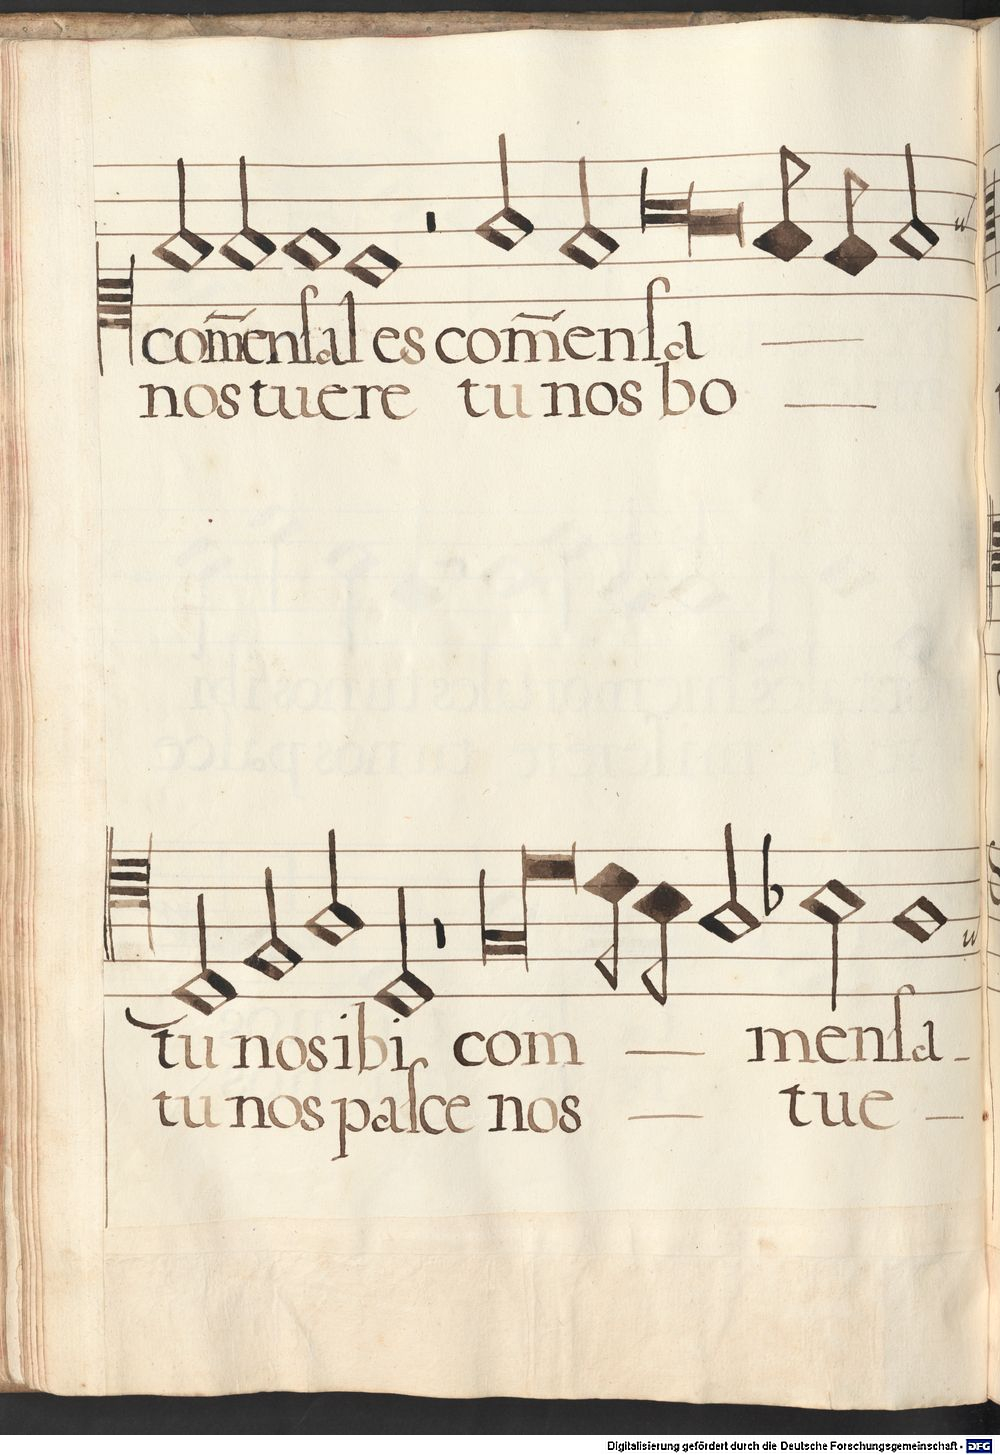 com̄ensal es com̄ensa
nos tuere tu nos bo
tu nos ibi com mensa
tu nos pasce nos tue
Digitalisierung gefördert durch die Deutsche Forschungsgemeinschaft - DFG